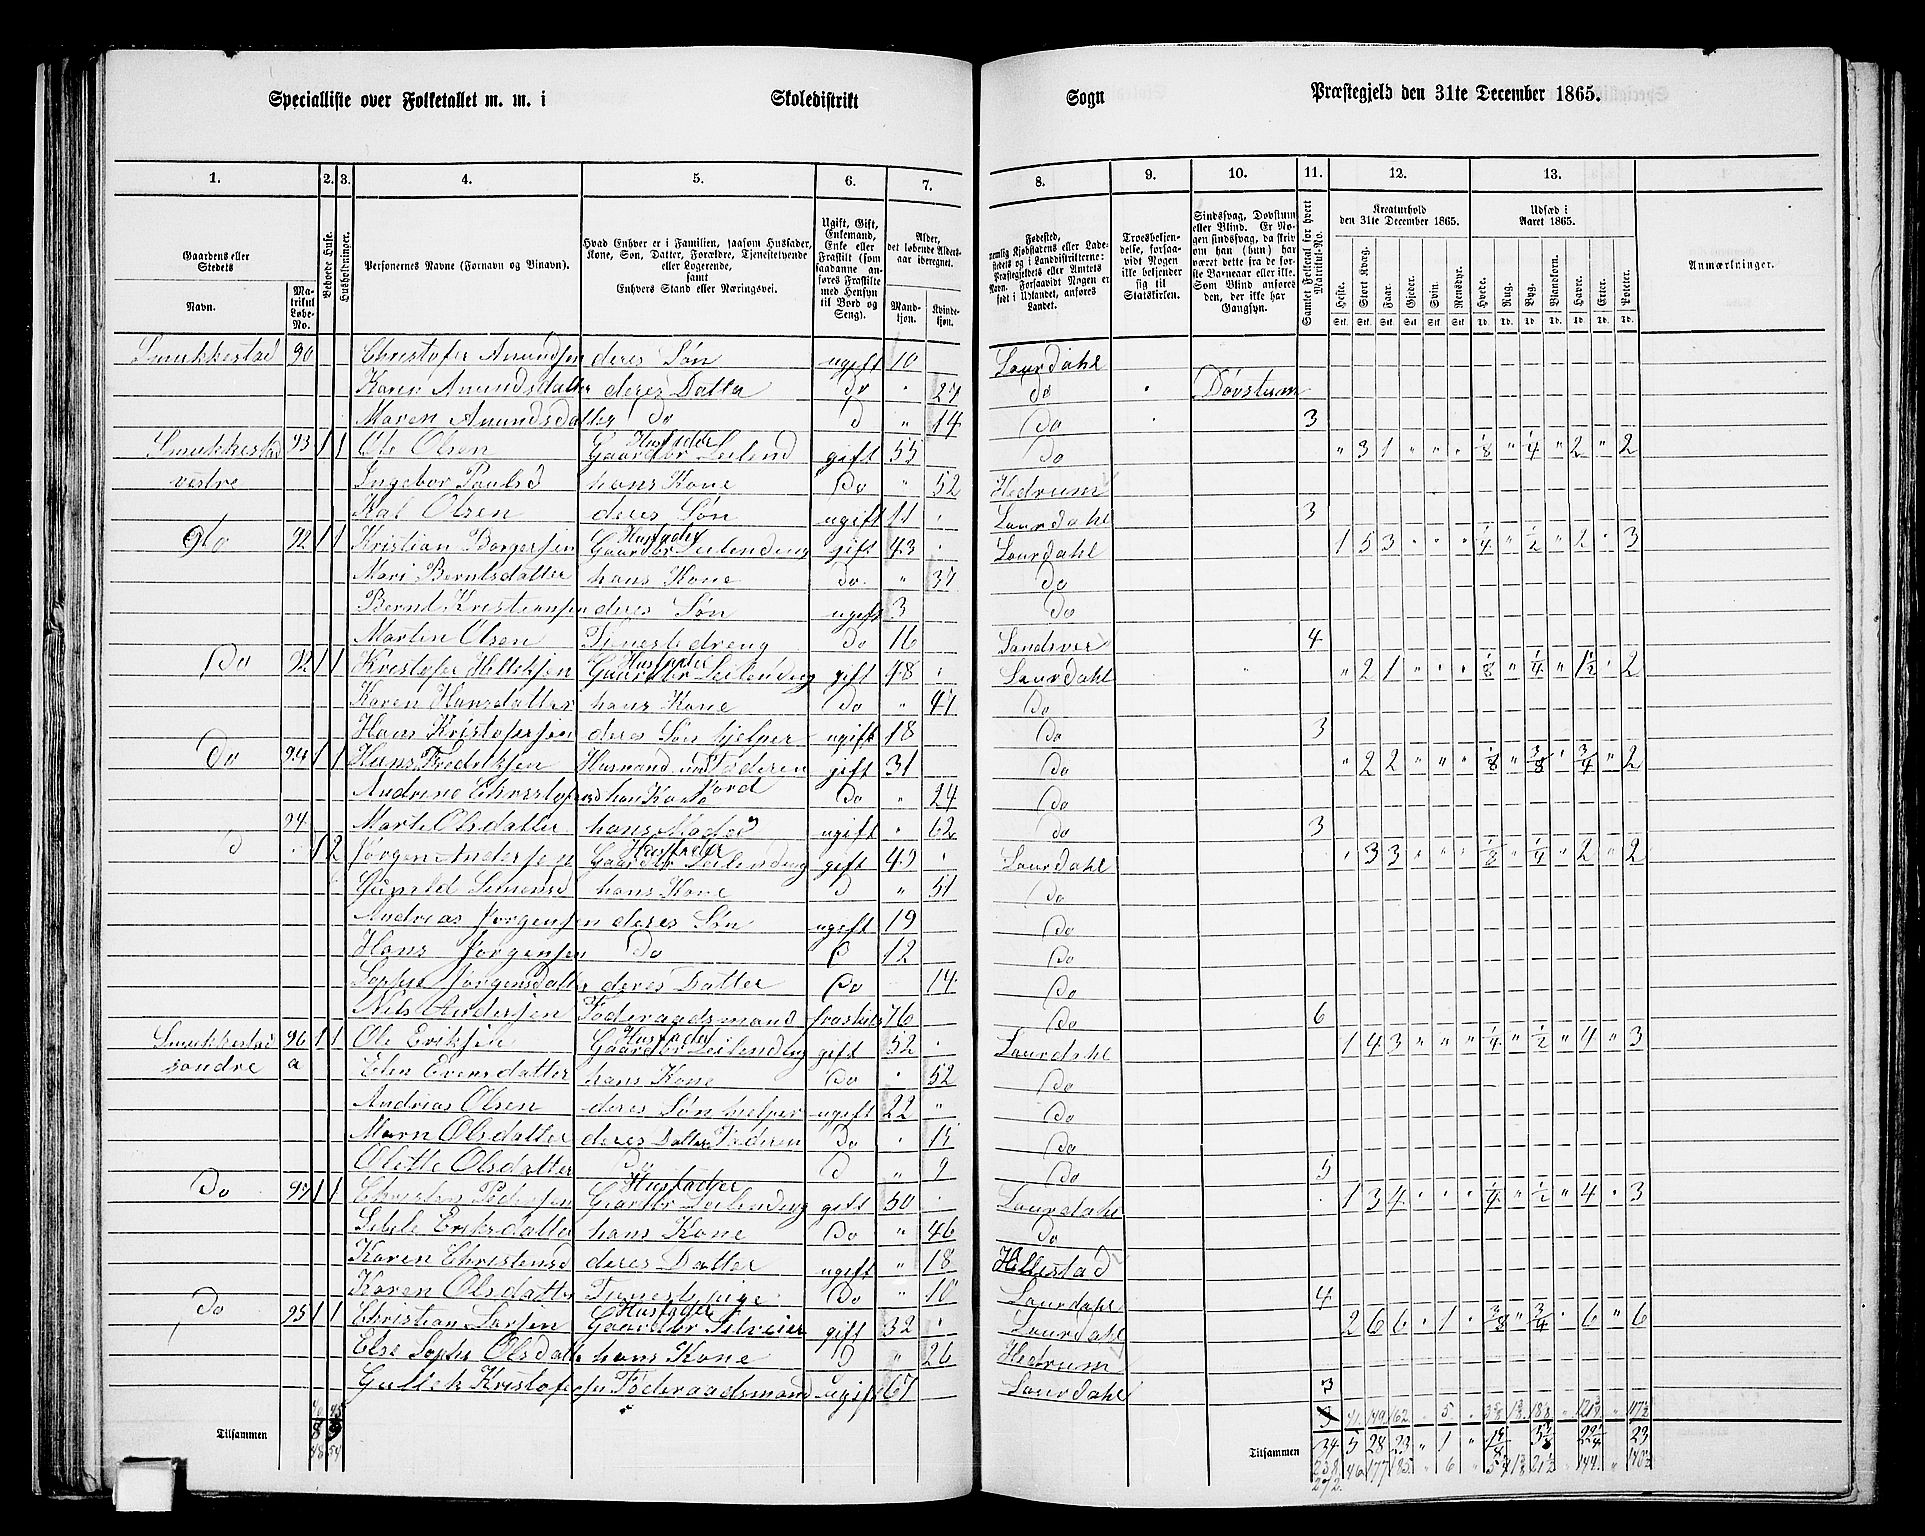 Specialliste over Folketallet m. m. i Skoledistrikt Sogn Præstegjeld den 31te December 1865.
1. 2. 3. 4. 5. 6. 7. 8. 9. 10. 11. 12. 13.
Gaardens eller Stedets Navn. Matrikul Løbe-No. Beboede Huse. Husholdninger. Personernes Navne (Fornavn og Tilnavn). Hvad Enhver er i Familien, saasom Husfader, Kone, Søn, Datter, Forældre, Tjenestetyende eller Logerende, samt Enhvers Stand eller Næringsvei. Ugift, Gift, Enkemand, Enke eller Fraskilt (som saadanne anføres Fraskilte med Hensyn til Bord og Seng). Alder, det løbende Aldersaar iberegnet. Mandkjøn. Kvindekjøn.
Fødested, nemlig Kjøbstadens eller Ladestedets og i Landdistrikterne: Præstegjeldets eller Amtets Navn. Forsaavidt Nogen er født i Udlandet, anføres Landet. Troesbekjendelse, forsaavidt Nogen ikke bekjender sig til Statskirken. Sindssvag, Døvstum eller Blind. Samlet Folketal for hvert Matrikul-No. Kreaturhold den 31te December 1865. Heste. Stort Kvæg. Faar. Gjeder. Svin. Rensdyr. Udsæd i Aaret 1865. Hvede. Rug. Byg. Blandkorn. Havre. Erter. Poteter. Anmærkninger.
Smukkestad 90 Christofer Amundsen deres Søn ugift 10 Laurdahl
Karen Amundsdatter deres Datter Do " 27 Do Døvstum
Maren Amundsdatter Do D " 14 Do 3
Smukkestad 93 1 1 Ole Olsen Husfader Gaardbr Leilend gift 55 Do " 3 1 " " " 1/8 " 1/4 " 2 " 2
vestre Ingebor Paulsd hans Kone Do " 52 Hedrum
Kal Olsen deres Søn ugift 11 Laurdahl 3
Do 92 1 1 Kristian Borgersen Husfader Gaardbr Leilending gift 43 Laurdahl 1 5 3 " " " 1/4 " 1/2 " 2 " 3
Mari Berntsdatter hans Kone Do " 37 Do
Bernt Kristiansen deres Søn ugift 3 Do
Martin Olsen Tjenestedreng Do 16 Sandsver 4
Do 92 1 1 Kristofer Helleksen Husfader Gaardbr Leilending gift 48 Laurdahl " 2 1 " " " 1/8 " 1/4 " 1 1/2 " 2
Karen Hansdatter hans Kone Do " 47 Do
Hans Kristofersen deres Søn hjelper ugift 18 Do 3
Do 94 1 1 Hans Fredriksen Husmand m Jord Faderen gift 31 Do " 2 2 " " " 1/8 " 3/8 " 3/4 " 2
Andrine Christofersd hans Kone Do " 24 Do
94 Marte Olsdatter hans Moder ugift " 62 Do 3
D 1 2 Jørgen Andersen Husfader Gaardbr Leilending gift 49 Laurdahl " 3 3 " " " 1/8 " 1/4 " 2 " 2
Gunild Simensd hans Kone D " 51 Do
Andreas Jørgensen deres Søn ugift 19 Do
Hans Jørgensen Do D 12 Do
Sophie Jørgensdatter deres Datter Do 14 Do
Nils Andersen Føderaadsmand fraskilt 76 Do 6
Smukkestad 96 1 1 Ole Eriksen Husfader Gaardbr Leilending gift 52 Laurdahl 1 4 3 " " " 1/4 " 1/2 " 4 " 3
søndre a Elen Evensdatter hans Kone Do " 52 Do
Andrias Olsen deres Søn hjelper ugift 22 Do
Marn Olsdatter deres Datter Faderen Do " 15 Do
Olette Olsdatter Do D " 9 Do 5
Do 97 1 1 Christen Pedersen Husfader Gaardbr Leilending gift 50 Laurdahl 1 3 4 " " " 1/4 " 1/2 " 4 " 3
Sibile Eriksdatter hans Kone Do " 46 Do
Karen Christensd deres Datter ugift " 18 Hillestad
Karen Olsdatter Tjenestepige Do " 10 Laurdahl 4
Do 95 1 1 Christian Larsen Husfader Gaardbr Selveier gift 32 Laurdahl 2 6 6 " 1 " 3/8 " 3/4 " 6 " 6
Else Sophie Olsdatter hans Kone D " 26 Hedrum
Gullek Kristofersen Føderaadsmand ugift 67 Laurdahl 3
Tilsammen 8 9 48 54
Tilsammen 34 5 28 23 " 1 " 23
238 46 177 185 " 6
272